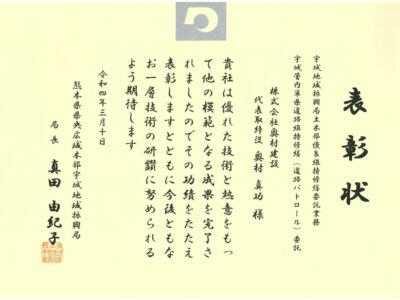 表彰状
宇城地域振興局土木部優良維持修繕委託業務
宇城管内県道路維持修繕(道路パトロール)委託
株式会社奥村建設
代表取締役 奥村 真功 様
貴社は優れた技術と熱意をもっ
て他の模範となる成果を完了さ
れましたのでその功績をたたえ
表彰しますとともに今後ともな
お一層技術の研鑽に努められる
よう期待します
令和四年三月十日
熊本県県央広域本部宇城地域振興局
局長 真田 由紀子